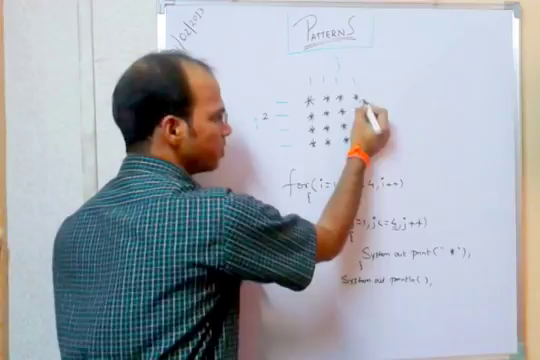 /02/2013
PATTERNS
* * * *
2 * * *
* * *
* * *
for(i= 4,i++)
{
=1,j<=4,j++)
{
System out print(" *"),
}
System out println( ),